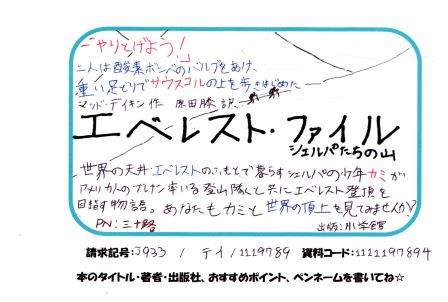 「やりとげよう!」
二人は酸素ボンベのバルブをあけ、
重い足どりでサウスコルの上を歩きはじめた――
マッド・デイキン 作 原田勝 訳
エベレスト・ファイル
シェルパたちの山
世界の天井・エベレストのふもとで暮らすシェルパの少年カミが
アメリカ人のブレナン率いる登山隊と共にエベレスト登頂を
目指す物語。あなたもカミと世界の頂上を見てみませんか?
PN:三十路 出版:小学館
請求記号:J933 / デイ / 1119789 資料コード:1111197894
本のタイトル・著者・出版社、おすすめポイント、ペンネームを書いてね☆